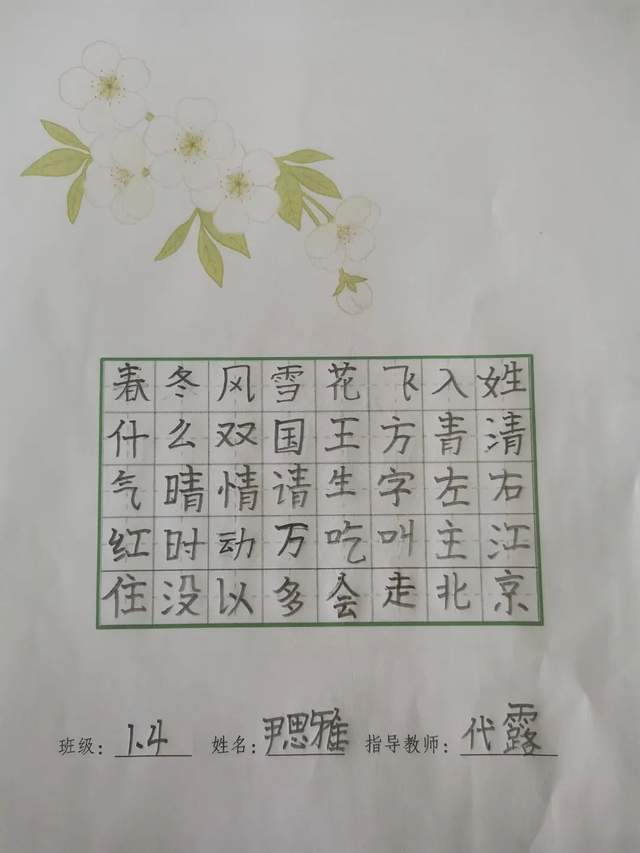 春冬风雪花飞入姓
什么双国王方青清
气晴情请生字左右
红时动万吃叫主江
住没以多会走北京
班级：1.4 姓名：尹思雅 指导教师：代露